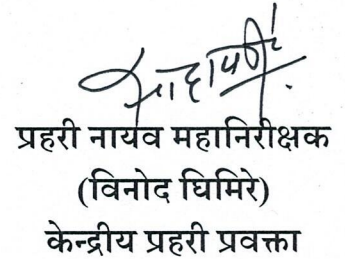 प्रहरी नायव महानिरीक्षक
(विनोद घिमिरे)
केन्द्रीय प्रहरी प्रवक्ता